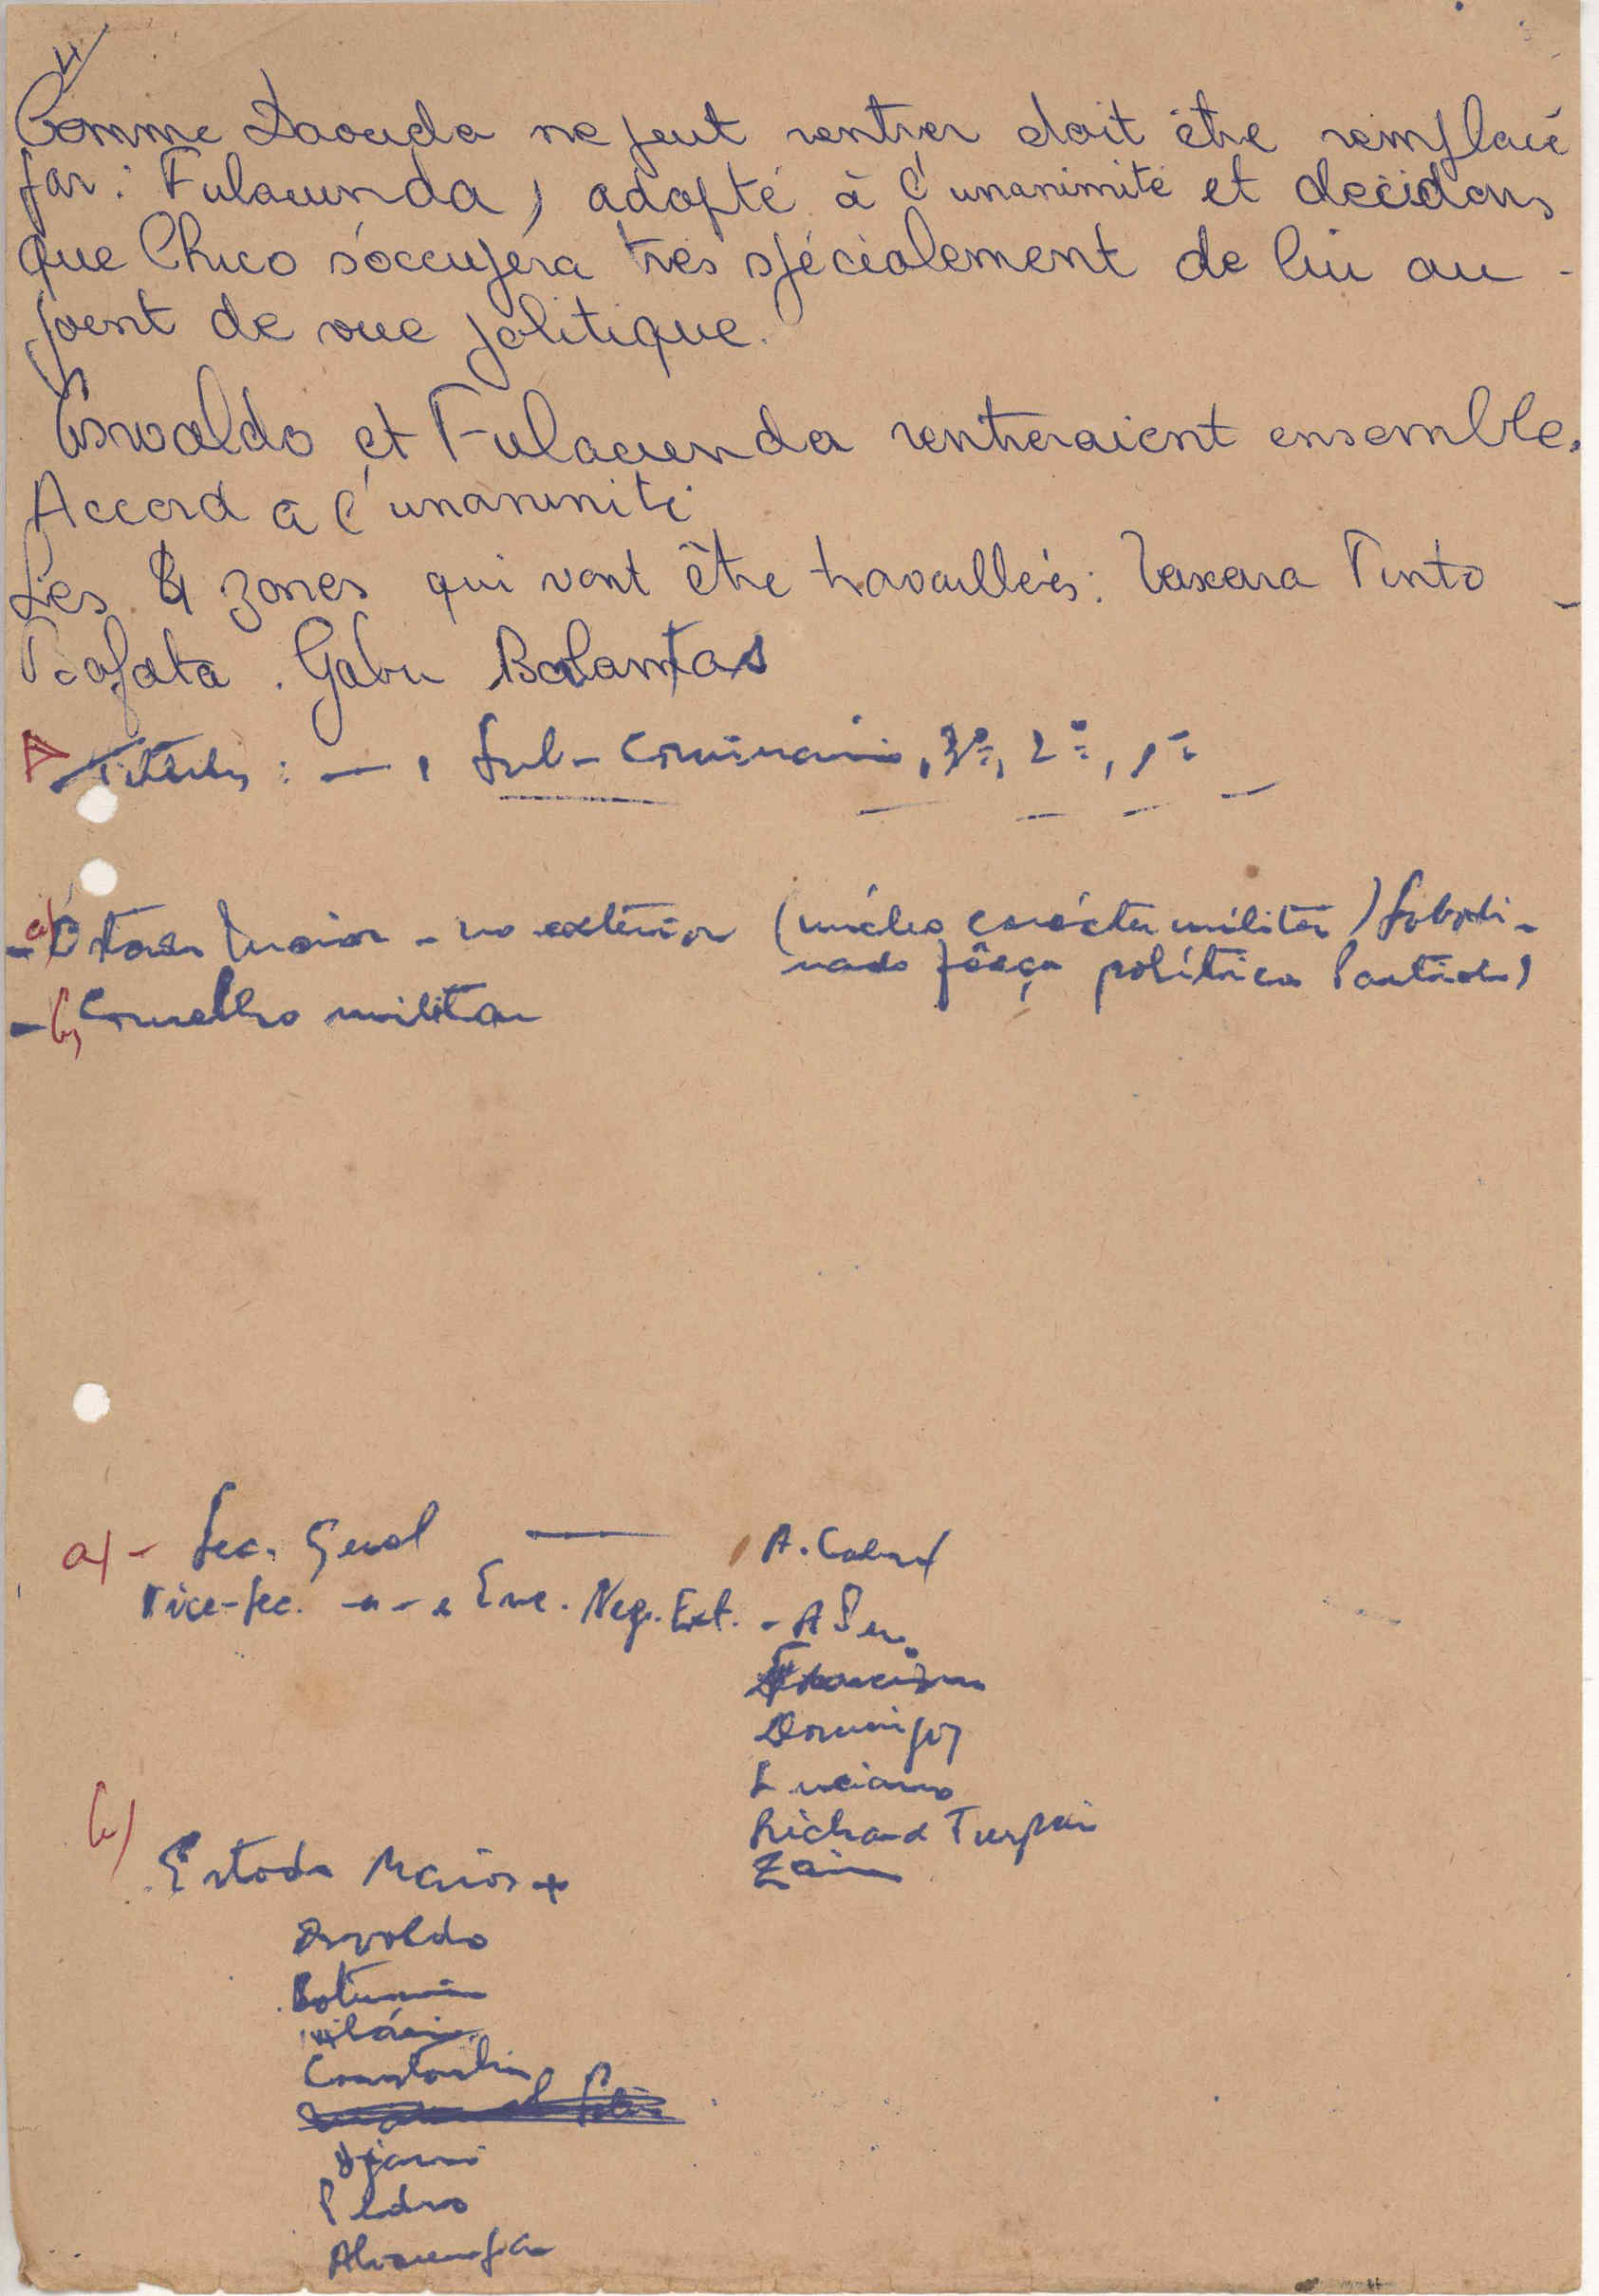 4/
Comme Daouda ne peut rentrer doit être remplacé
par : Fulacunda, adopté à l'unanimité et décidons
que Chico s'occupéra très spécialement de lui au
point de vue politique.
Osvaldo et Fulacunda rentreraient ensemble.
Accord a l'unanimité
Les 4 zones qui vont être travaillées : Xaxara Tinto
Bafata . Gabu Balantas
Títulos : — , Sub-Comissario, 3º, 2º, 1º
- a) Estado Maior - no exterior (núcleo carácter militar) Subordi-
nado fôrça política Partido)
- b) Conselho militar
a) - Sec. Geral — A. Cabral
Vice-Sec. -"- e Enc. Neg. Ext. - A
Domingos
Luciano
Richard Turpin
Zain
b)
Estado Maior +
Osvaldo
Hilário
Constantin
Djassi
Pedro